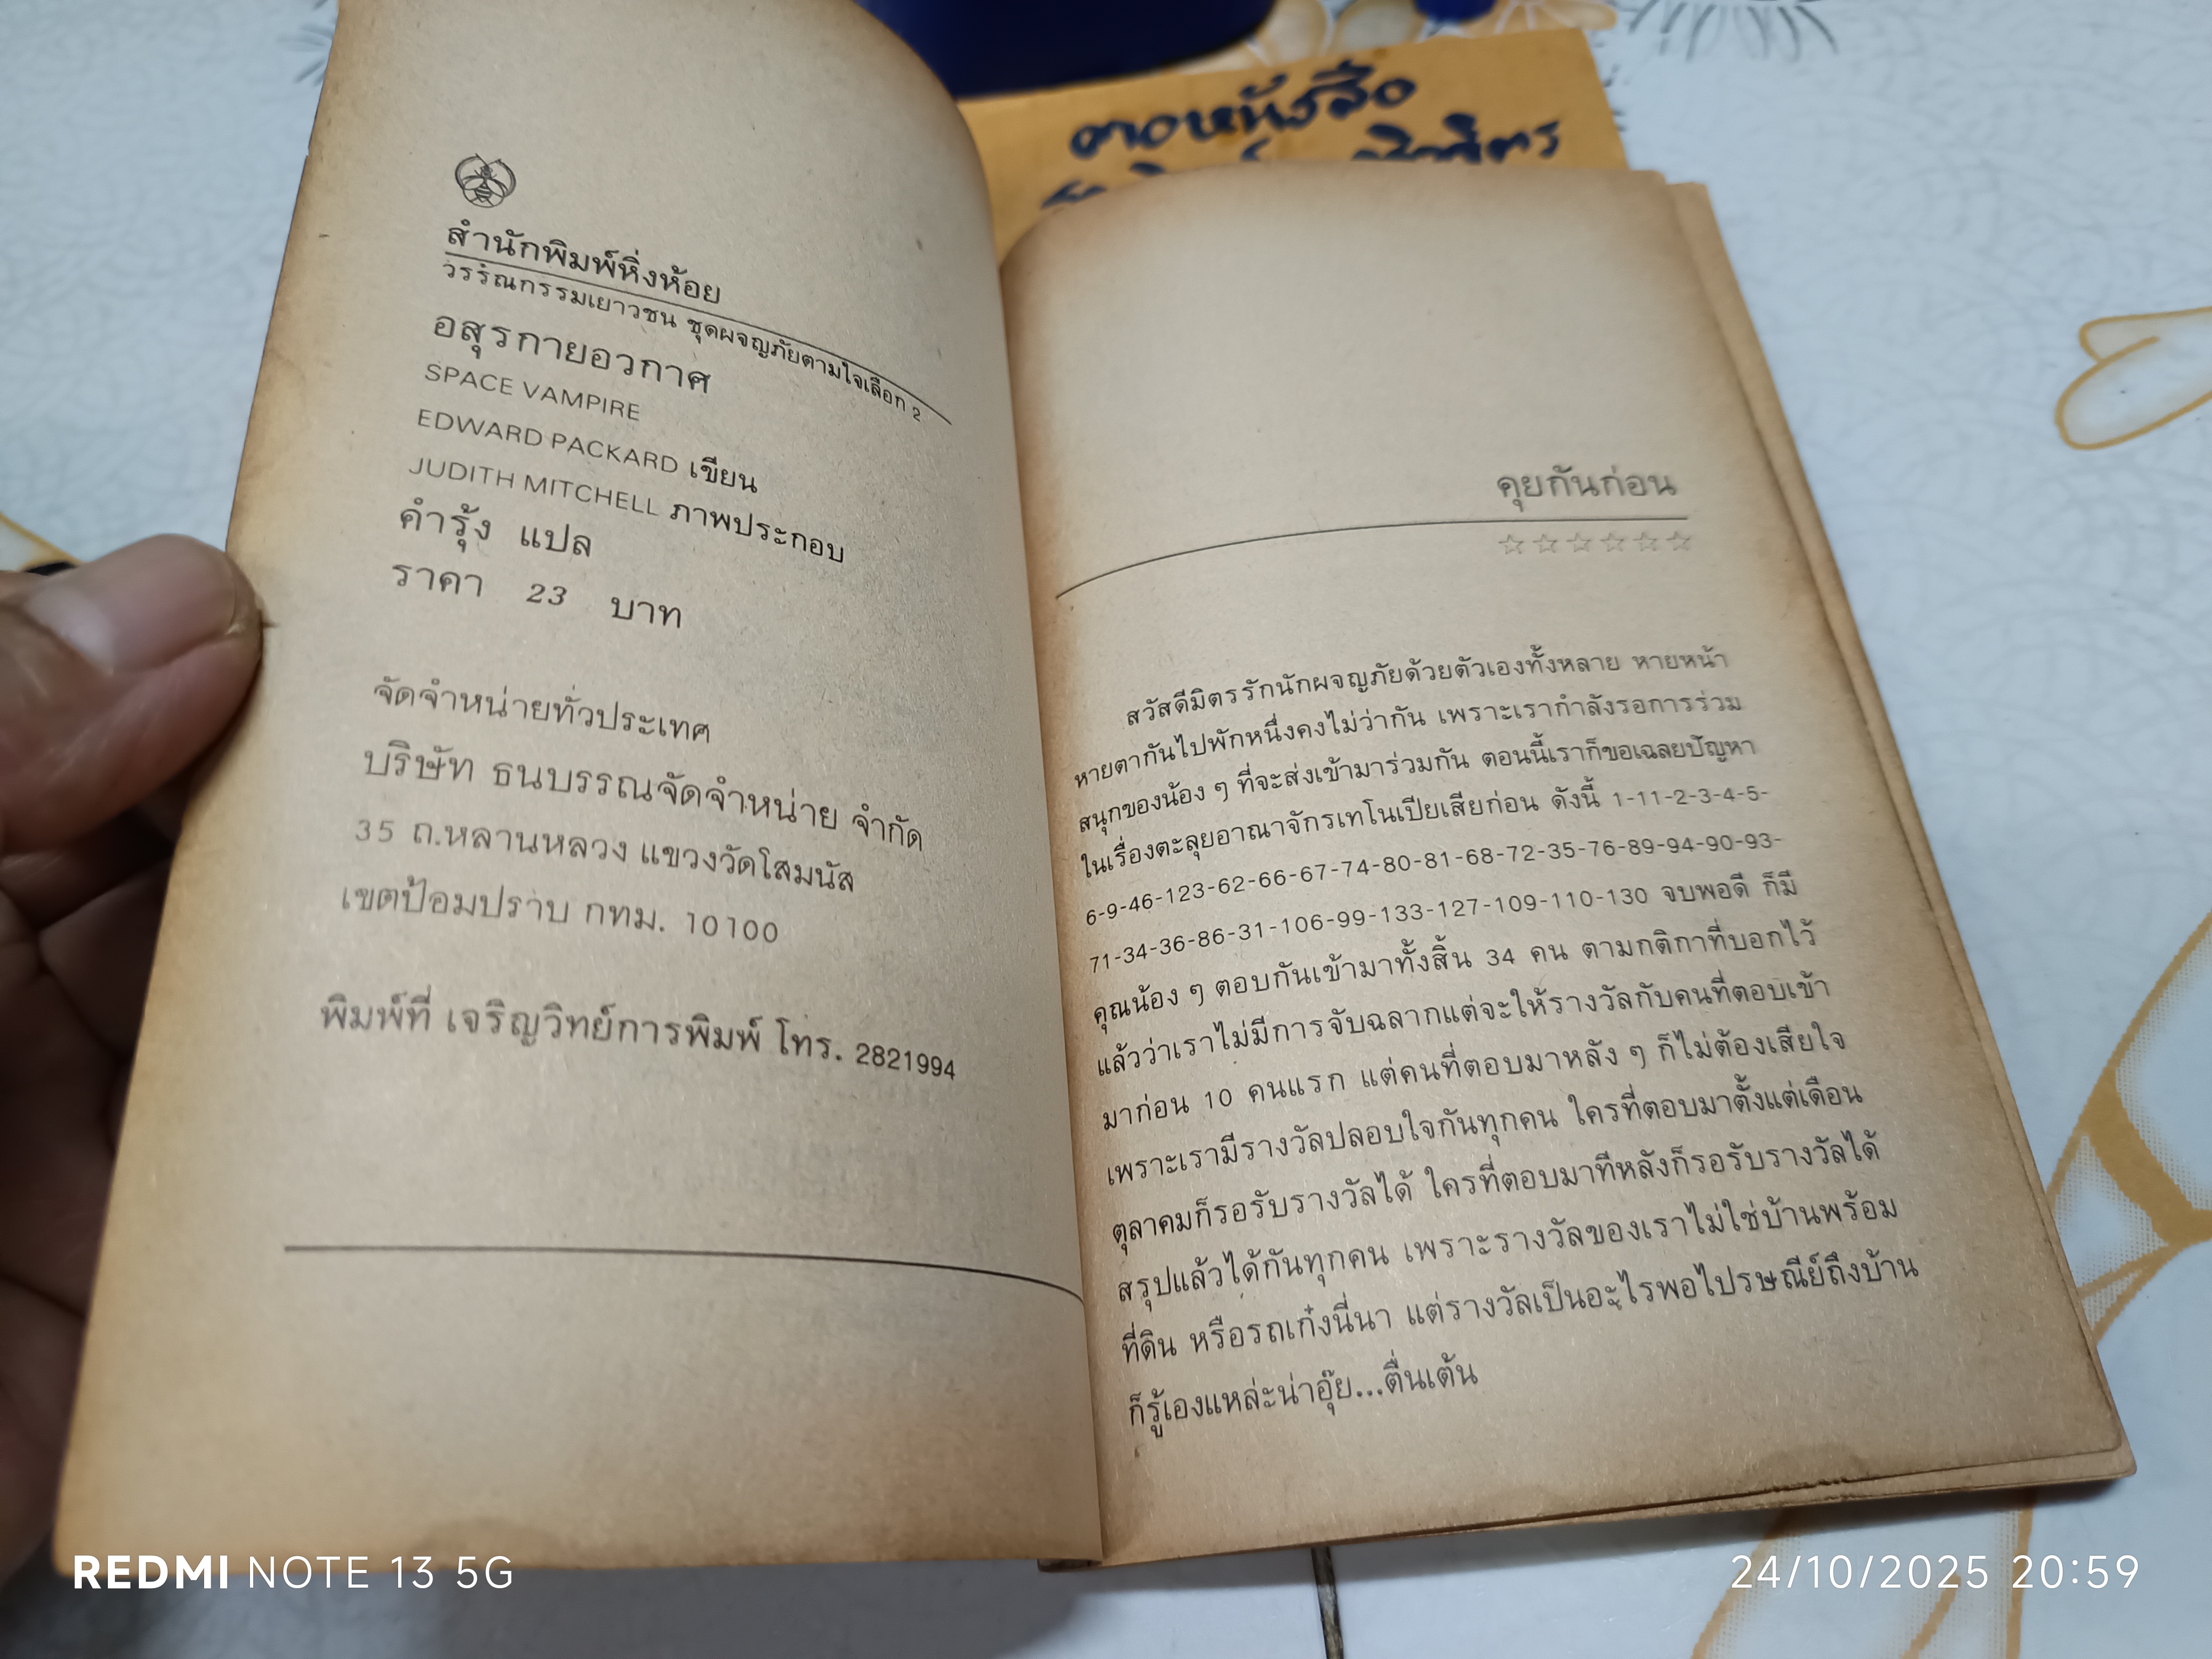 สำนักพิมพ์หิ่งห้อย
วรรณกรรมเยาวชน ชุดผจญภัยตามใจเลือก 2
อสุรกายอวกาศ
SPACE VAMPIRE
EDWARD PACKARD เขียน
JUDITH MITCHELL ภาพประกอบ
คำรุ้ง แปล
ราคา 23 บาท
จัดจำหน่ายทั่วประเทศ
บริษัท ธนบรรณจัดจำหน่าย จำกัด
35 ถ.หลานหลวง แขวงวัดโสมนัส
เขตป้อมปราบ กทม. 10100
พิมพ์ที่ เจริญวิทย์การพิมพ์ โทร. 2821994
ตอหนังสือ
คุยกันก่อน
☆☆☆☆☆☆
สวัสดีมิตรรักนักผจญภัยด้วยตัวเองทั้งหลาย หายหน้า
หายตากันไปพักหนึ่งคงไม่ว่ากัน เพราะเรากำลังรอการร่วม
สนุกของน้อง ๆ ที่จะส่งเข้ามาร่วมกัน ตอนนี้เราก็ขอเฉลยปัญหา
ในเรื่องตะลุยอาณาจักรเทโนเปียเสียก่อน ดังนี้ 1-11-2-3-4-5-
6-9-46-123-62-66-67-74-80-81-68-72-35-76-89-94-90-93-
71-34-36-86-31-106-99-133-127-109-110-130 จบพอดี ก็มี
คุณน้อง ๆ ตอบกันเข้ามาทั้งสิ้น 34 คน ตามกติกาที่บอกไว้
แล้วว่าเราไม่มีการจับฉลากแต่จะให้รางวัลกับคนที่ตอบเข้า
มาก่อน 10 คนแรก แต่คนที่ตอบมาหลัง ๆ ก็ไม่ต้องเสียใจ
เพราะเรามีรางวัลปลอบใจกันทุกคน ใครที่ตอบมาตั้งแต่เดือน
ตุลาคมก็รอรับรางวัลได้ ใครที่ตอบมาทีหลังก็รอรับรางวัลได้
สรุปแล้วได้กันทุกคน เพราะรางวัลของเราไม่ใช่บ้านพร้อม
ที่ดิน หรือรถเก๋งนี่นา แต่รางวัลเป็นอะไรพอไปรษณีย์ถึงบ้าน
ก็รู้เองแหล่ะน่าอุ๊ย...ตื่นเต้น
REDMI NOTE 13 5G
24/10/2025 20:59